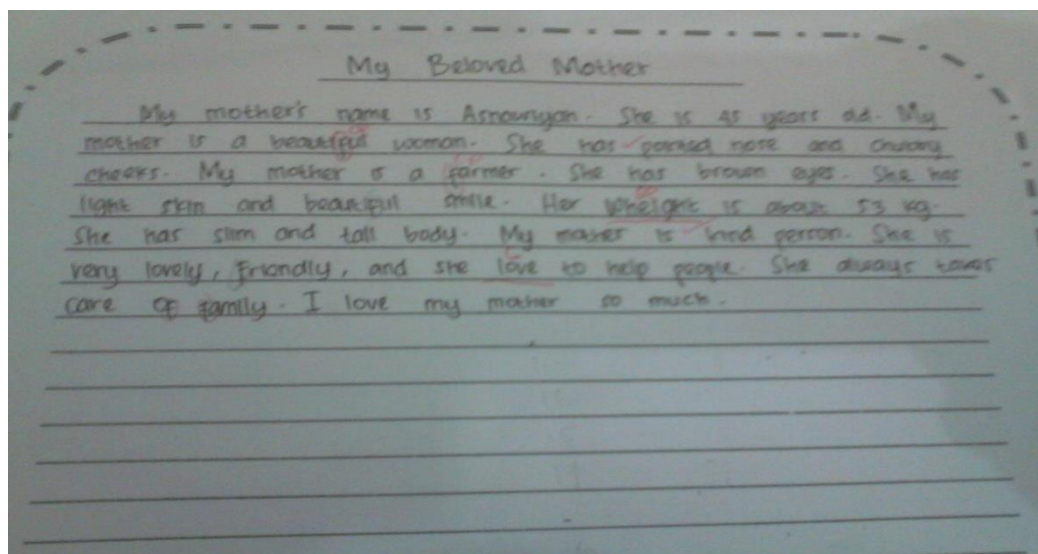 My Beloved Mother
My mother's name is Asnauriyah. She is 45 years old. My
mother is a beautiful woman. She has pointed nose and chubby
cheeks. My mother is a farmer. She has brown eyes. She has
light skin and beautiful smile. Her wheight is about 53 kg.
She has slim and tall body. My mother is kind person. She is
very lovely, friendly, and she love to help people. She always takes
care of family. I love my mother so much.